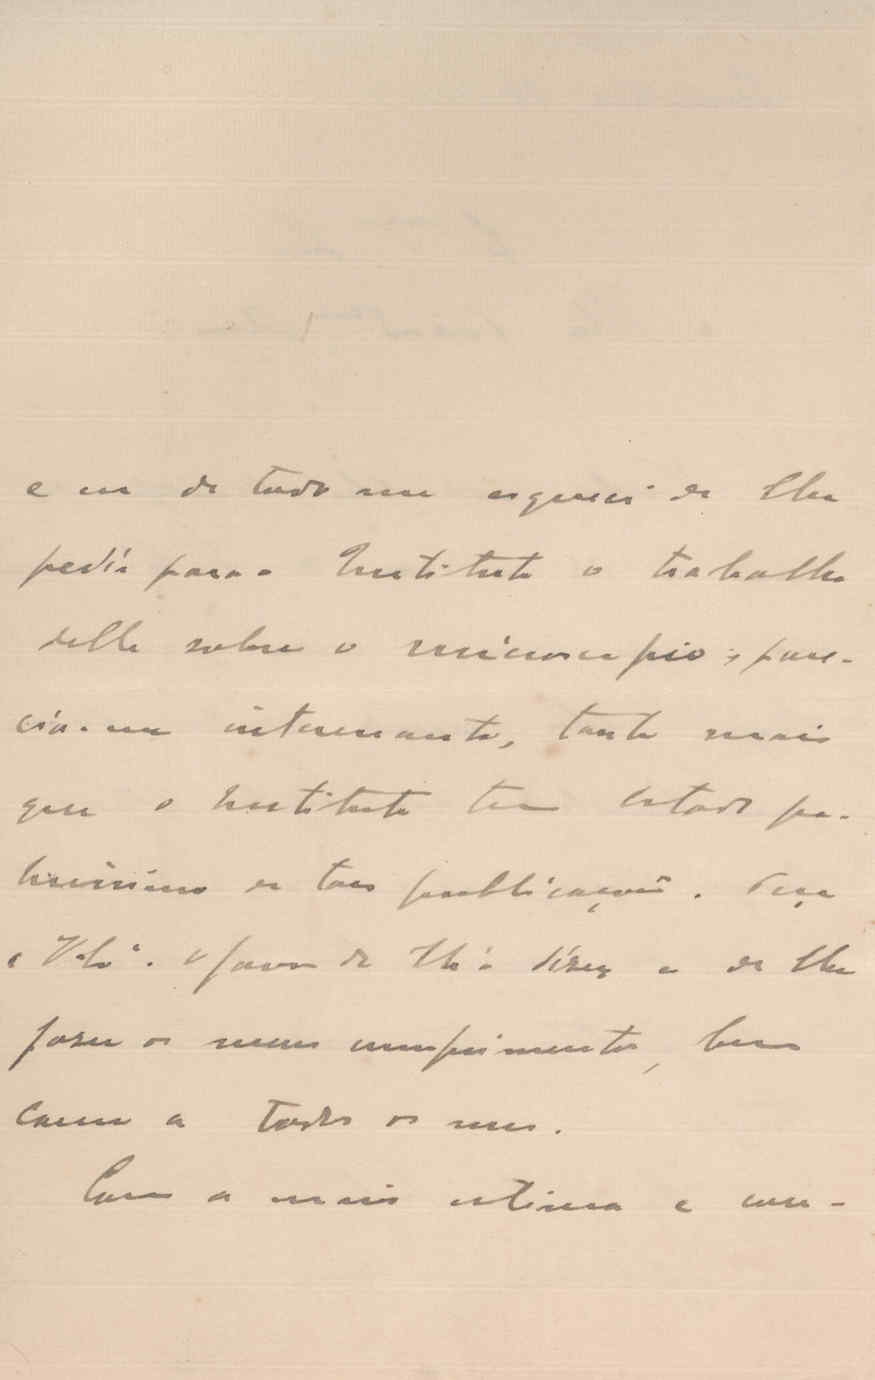 e eu de todo me esqueci de lhe
pedir para o Instituto o trabalho
delle sobre o microscopio; pare-
cia-me interessante, tanto mais
que o Instituto tem estado po-
brissimo de taes publicações. Peça
o favor de lh'o dizer e de lhe
fazer os meus cumprimentos, bem
como a todos os seus.
Com a mais estima e con-